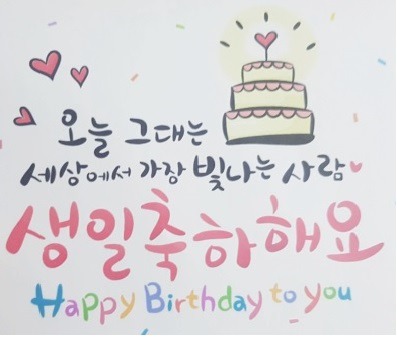 오늘 그대는
세상에서 가장 빛나는 사람
생일축하해요
Happy Birthday to you